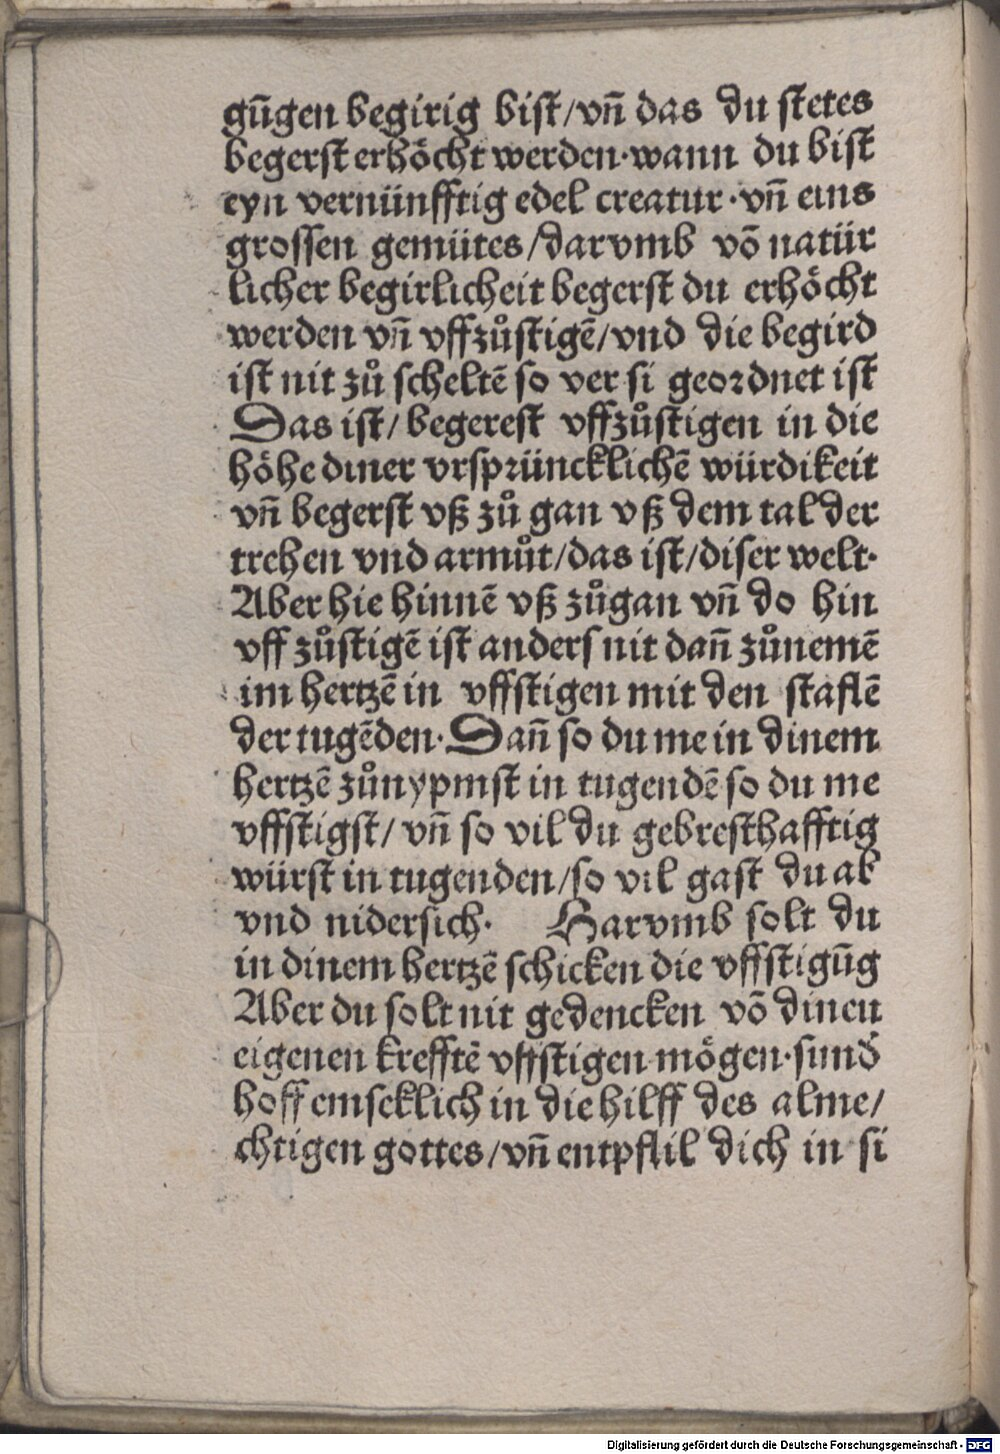 gūgen begirig bist/vn̄ das du stetes
begerst erhöcht werden·wann du bist
eyn vernünfftig edel creatur·vn̄ eins
grossen gemütes/darvmb vō natür
licher begirlicheit begerst du erhöcht
werden vn̄ vffzůstigē/vnd die begird
ist nit zů scheltē so ver si geordnet ist
Das ist/ begerest vffzůstigen in die
höhe diner vrsprüncklichē würdikeit
vn̄ begerst vß zů gan vß dem tal der
trehen vnd armůt/das ist/diser welt·
Aber hie hinnē vß zůgan vn̄ do hin
vff zůstigē ist anders nit dan̄ zůnemē
im hertzē in vffstigen mit den staflē
der tugēden·Dan̄ so du me in dinem
hertzē zůnypmst in tugendē so du me
vffstigst/vn̄ so vil du gebresthafftig
würst in tugenden/so vil gast du ab
vnd nidersich· Harvmb solt du
in dinem hertzē schicken die vffstigūg
Aber du solt nit gedencken vō dineu
eigenen krefftē vffstigen mögen·sund̄
hoff emseklich in die hilff des alme/
chtigen gottes/vn̄ entpflil dich in si
Digitalisierung gefördert durch die Deutsche Forschungsgemeinschaft - DFG